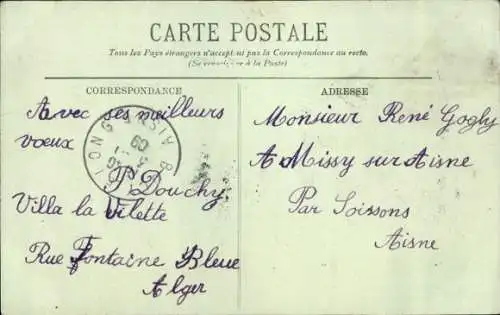 CARTE POSTALE
Tous les Pays étrangers n'acceptent pas la Correspondance au recto.
(Se renseigner à la Poste)
CORRESPONDANCE
Avec ses meilleurs
voeux
P. Douchy
Villa la Vilette
Rue Fontaine Bleue
Alger
ADRESSE
Monsieur René Gogly
A Missy sur Aisne
Par Soissons
Aisne